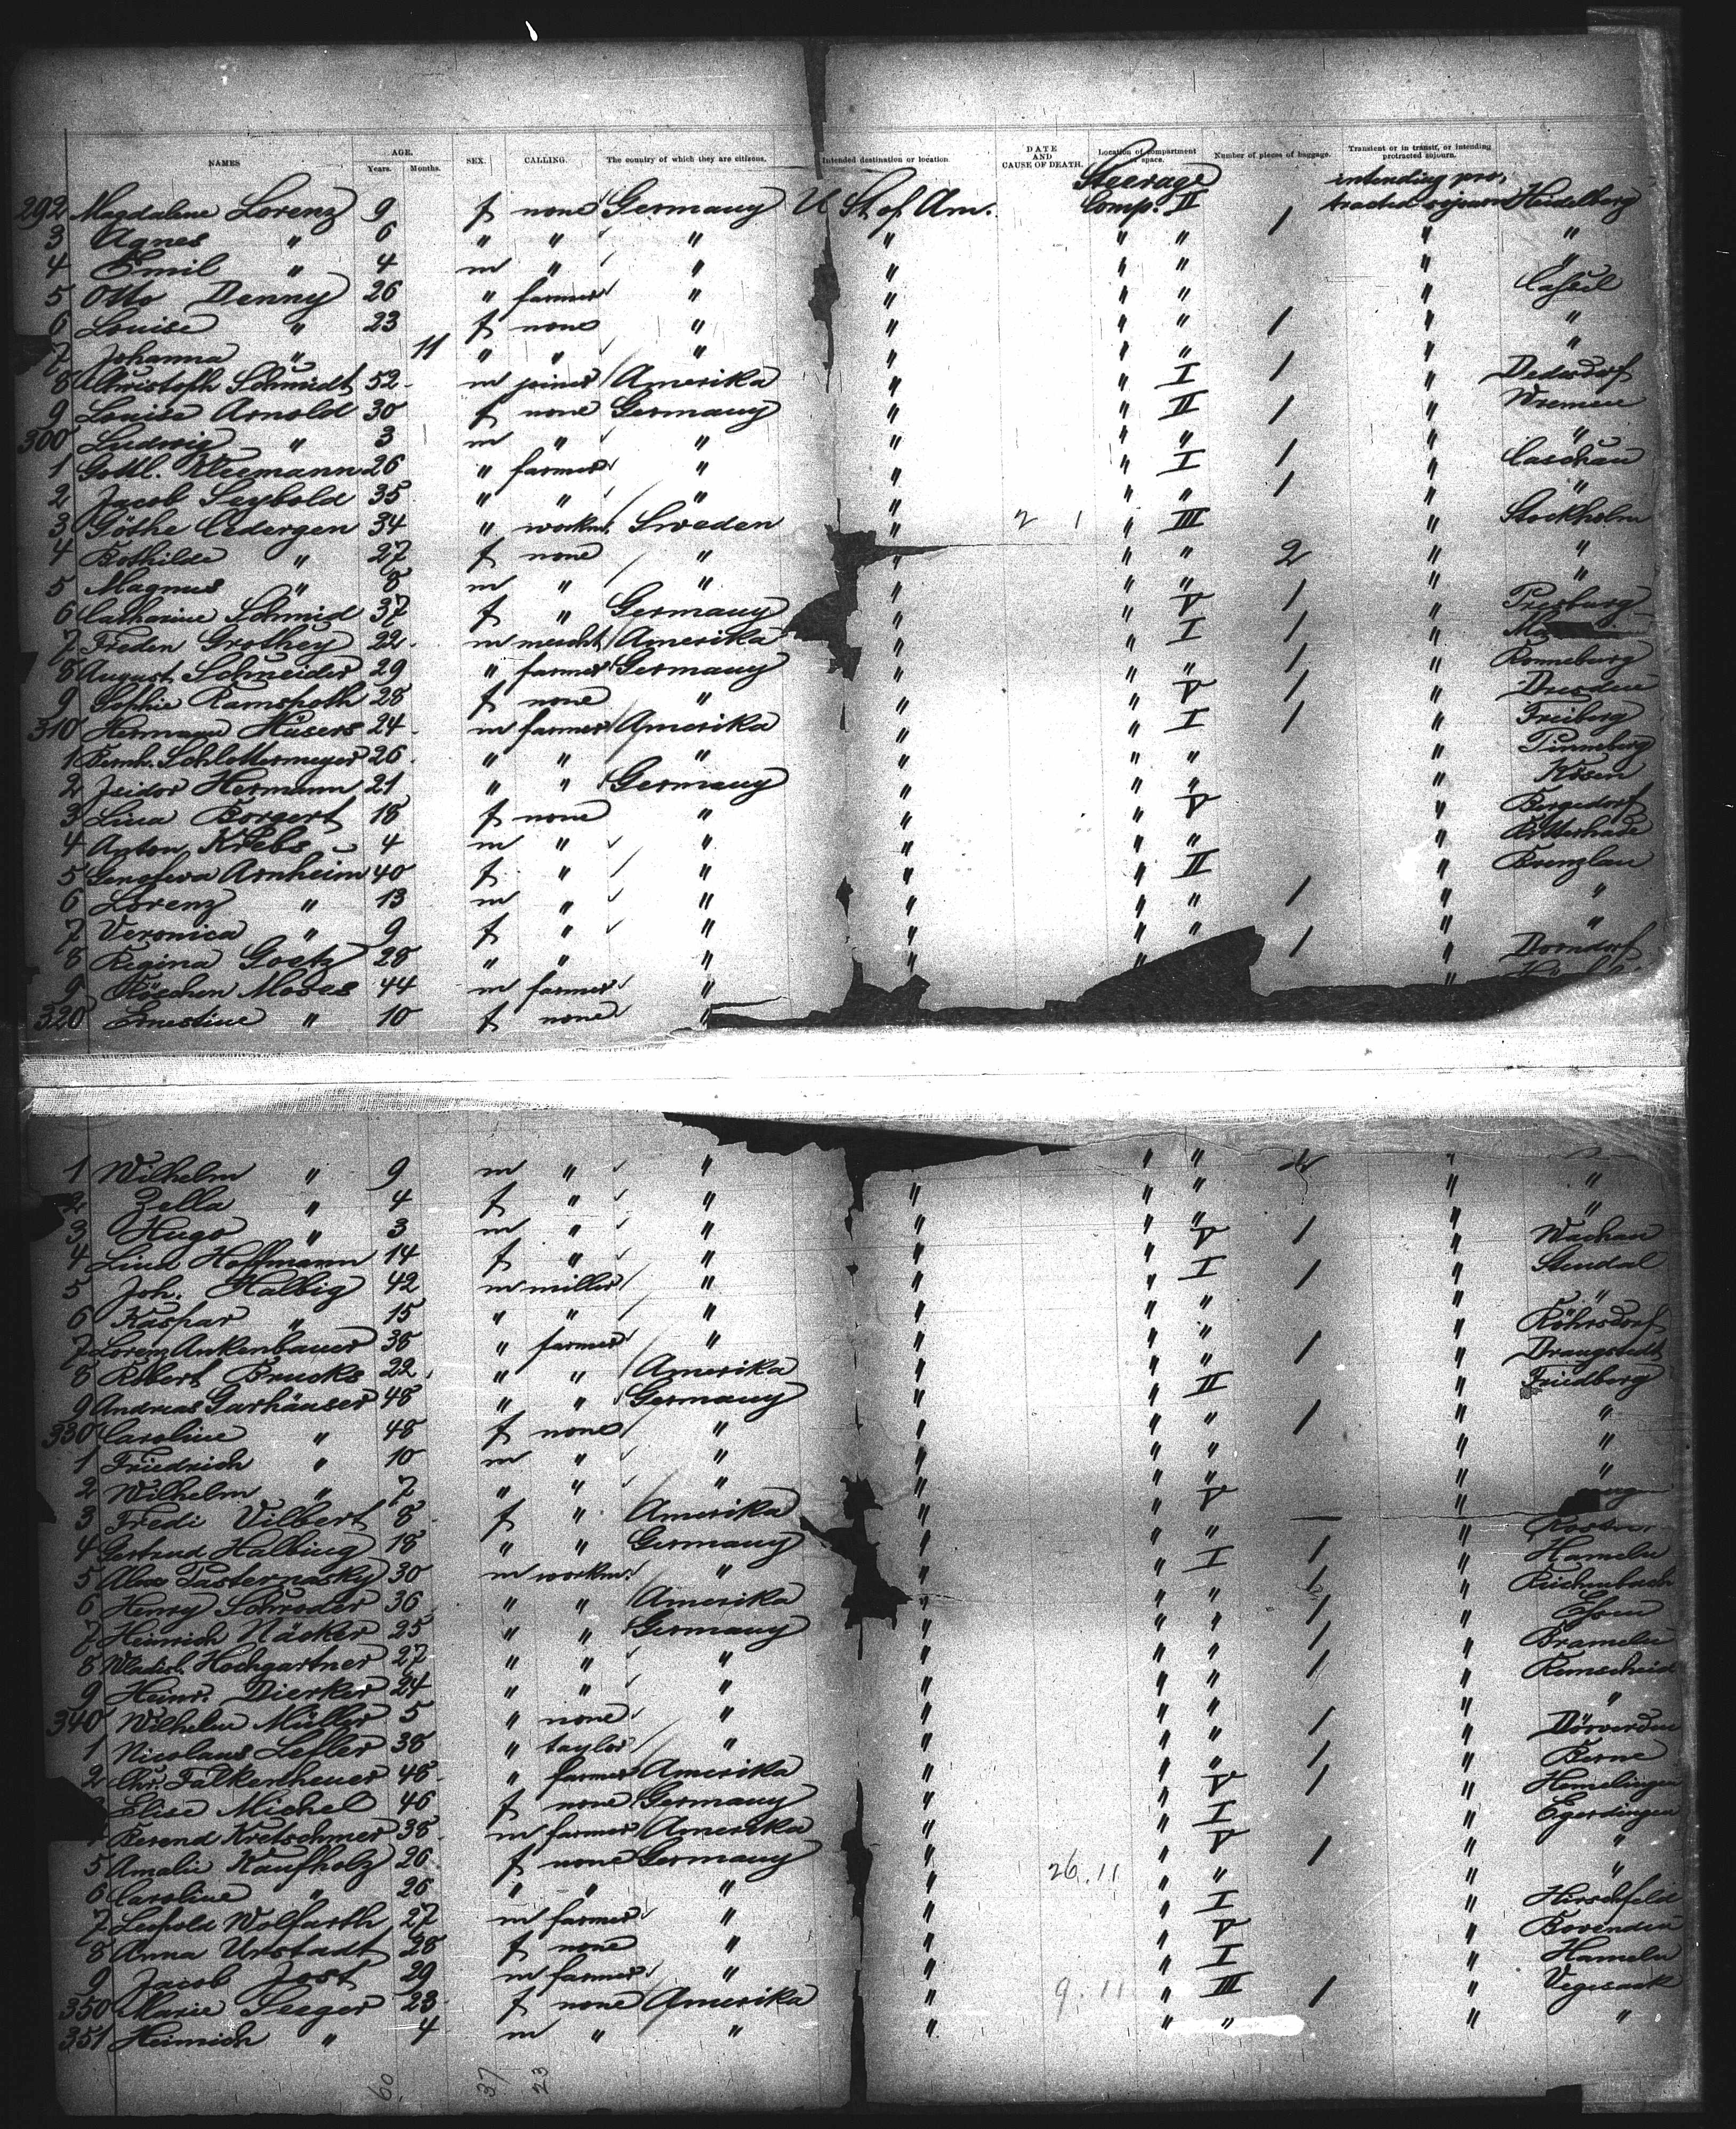 NAMES AGE. Years. Months. SEX. CALLING. The country of which they are citizens. Intended destination or location. DATE AND CAUSE OF DEATH. Location of compartment or space. Number of pieces of baggage. Transient or in transit, or intending protracted sojourn.
292 Magdalene Lorenz 9 f none Germany U St. of Am. Steerage Comp. II 1 intending pro, tracted sojourn Heidelberg
3 Agnes " 6 " " " " " " " "
4 Emil " 4 m " " " " " " "
5 Otto Denny 26 " farmer " " " " " Cassel
6 Louise " 23 f none " " " " 1 " "
7 Johanna " 11 " " " " " " " "
8 Christoph Schmidt 52 m joiner Amerika " " I 1 " Dedesdorf
9 Louise Arnold 30 f none Germany " " II 1 " Wremen
300 Ludwig " 3 m " " " " " " "
1 Gottl. Kleemann 26 " farmer " " " I 1 " Caschau
2 Jacob Seybold 35 " " " " " " 1 " "
3 Göthe Cedergen 34 " workm. Sweden " 2 1 " III " Stockholm
4 Bothilde " 27 f none " " " " 2 " "
5 Magnus " 8 m " " " " " " "
6 Catharine Schmid 37 f " Germany " " V 1 " Presburg
7 Freden Grothey 22 m mercht Amerika " " I 1 "
8 August Schneider 29 " farmer Germany " " " 1 " Ronneburg
9 Sophie Ramspoth 28 f none " " " V 1 " Dresden
310 Hermann Hüsers 24 m farmer Amerika " " I 1 " Freiberg
1 Bernh. Schlottermeyer 26 " " " " " " " Pinneberg
2 Isidor Hermann 21 " " Germany " " " " Kösen
3 Lina Borgert 18 f none " " " V " Bergedorf
4 Anton Krebs 4 m " " " " " " Ritterhude
5 Genofeva Arnheim 40 f " " " " II " Brenzlau
6 Lorenz " 13 m " " " " " 1 " "
7 Veronica " 9 f " " " " " " "
8 Regina Goetz 28 " " " " " 1 " Dorndorf
9 Röschen Moses 44 m farmer " "
320 Ernestine " 10 f none "
1 Wilhelm " 9 m " " " " "
2 Zella " 4 f " " " " " " "
3 Hugo " 3 m " " " " " " "
4 Lina Hoffmann 14 f " " " " V 1 " Wachau
5 Joh. Halbig 42 m miller " " " I 1 " Stendal
6 Kaspar " 15 " " " " " " " "
7 Lorenz Ankenbauer 38 " farmer " " " " " Röhrsdorf
8 Robert Brucks 22 " " Amerika " " " 1 " Drangstedt
9 Andreas Garhäuser 48 " " Germany " " II " Friedberg
330 Caroline " 48 f none " " " " 1 " "
1 Friedrich " 10 m " " " " " " "
2 Wilhelm " 7 " " " " " " " "
3 Fredi Vilbert 8 f " Amerika " " V "
4 Gertrud Halbing 18 " " Germany " " " "
5 Alex Pasternasky 30 m workm. " " " I 1 " Hameln
6 Henry Schröder 36 " " Amerika " " " 1 " Reichenbach
7 Heinrich Näcker 25 " " Germany " " " 1 " Essen
8 Wladisl. Hochgartner 27 " " " " " " 1 " Bramelu
9 Heinr. Dierker 24 " " " " " " 1 " Remscheid
340 Wilhelm Müller 5 " none " " " " " "
1 Nicolaus Lefler 38 " taylor " " " " 1 " Dörverden
2 Chr. Falkenheuer 48 " farmer Amerika " " " 1 " Berne
Elise Michel 46 f none Germany " " V 1 " Hemelingen
Berend Kretschmer 38 m farmer Amerika " " I " Egerdingen
5 Amalie Kaufholz 20 f none Germany " " V 1 " "
6 Caroline " 26 " " " " 26.11 " " " "
7 Leopold Wolfarth 27 m farmer " " " I " Hirschfeld
8 Anna Urstadt 28 f none " " " V " Bovenden
9 Jacob Jost 29 m farmer " " " I " Hameln
350 Marie Seeger 23 f none Amerika " 9.11 " III 1 " Vegesack
351 Heinrich " 4 m " " " " " " "
60. 37 23